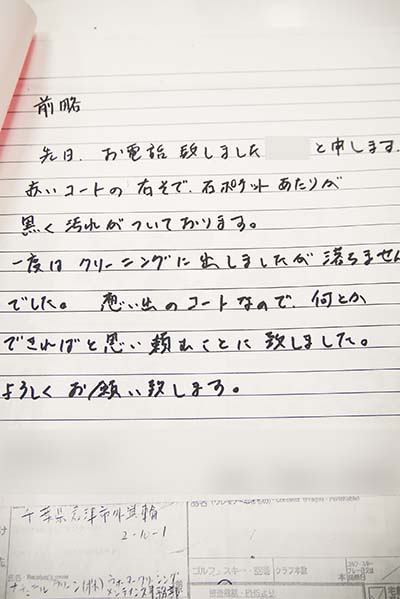 前略
先日、お電話致しました と申します。
赤いコートの右そで、右ポケットあたりが
黒く汚れがついております。
一度はクリーニングに出しましたが落ちません
でした。 思い出のコートなので、何とか
できればと思い頼むことに致しました。
よろしくお願い致します。
千葉県君津市外箕輪
2-10-1
ゴルフ、スキー・空港 クラブ本数